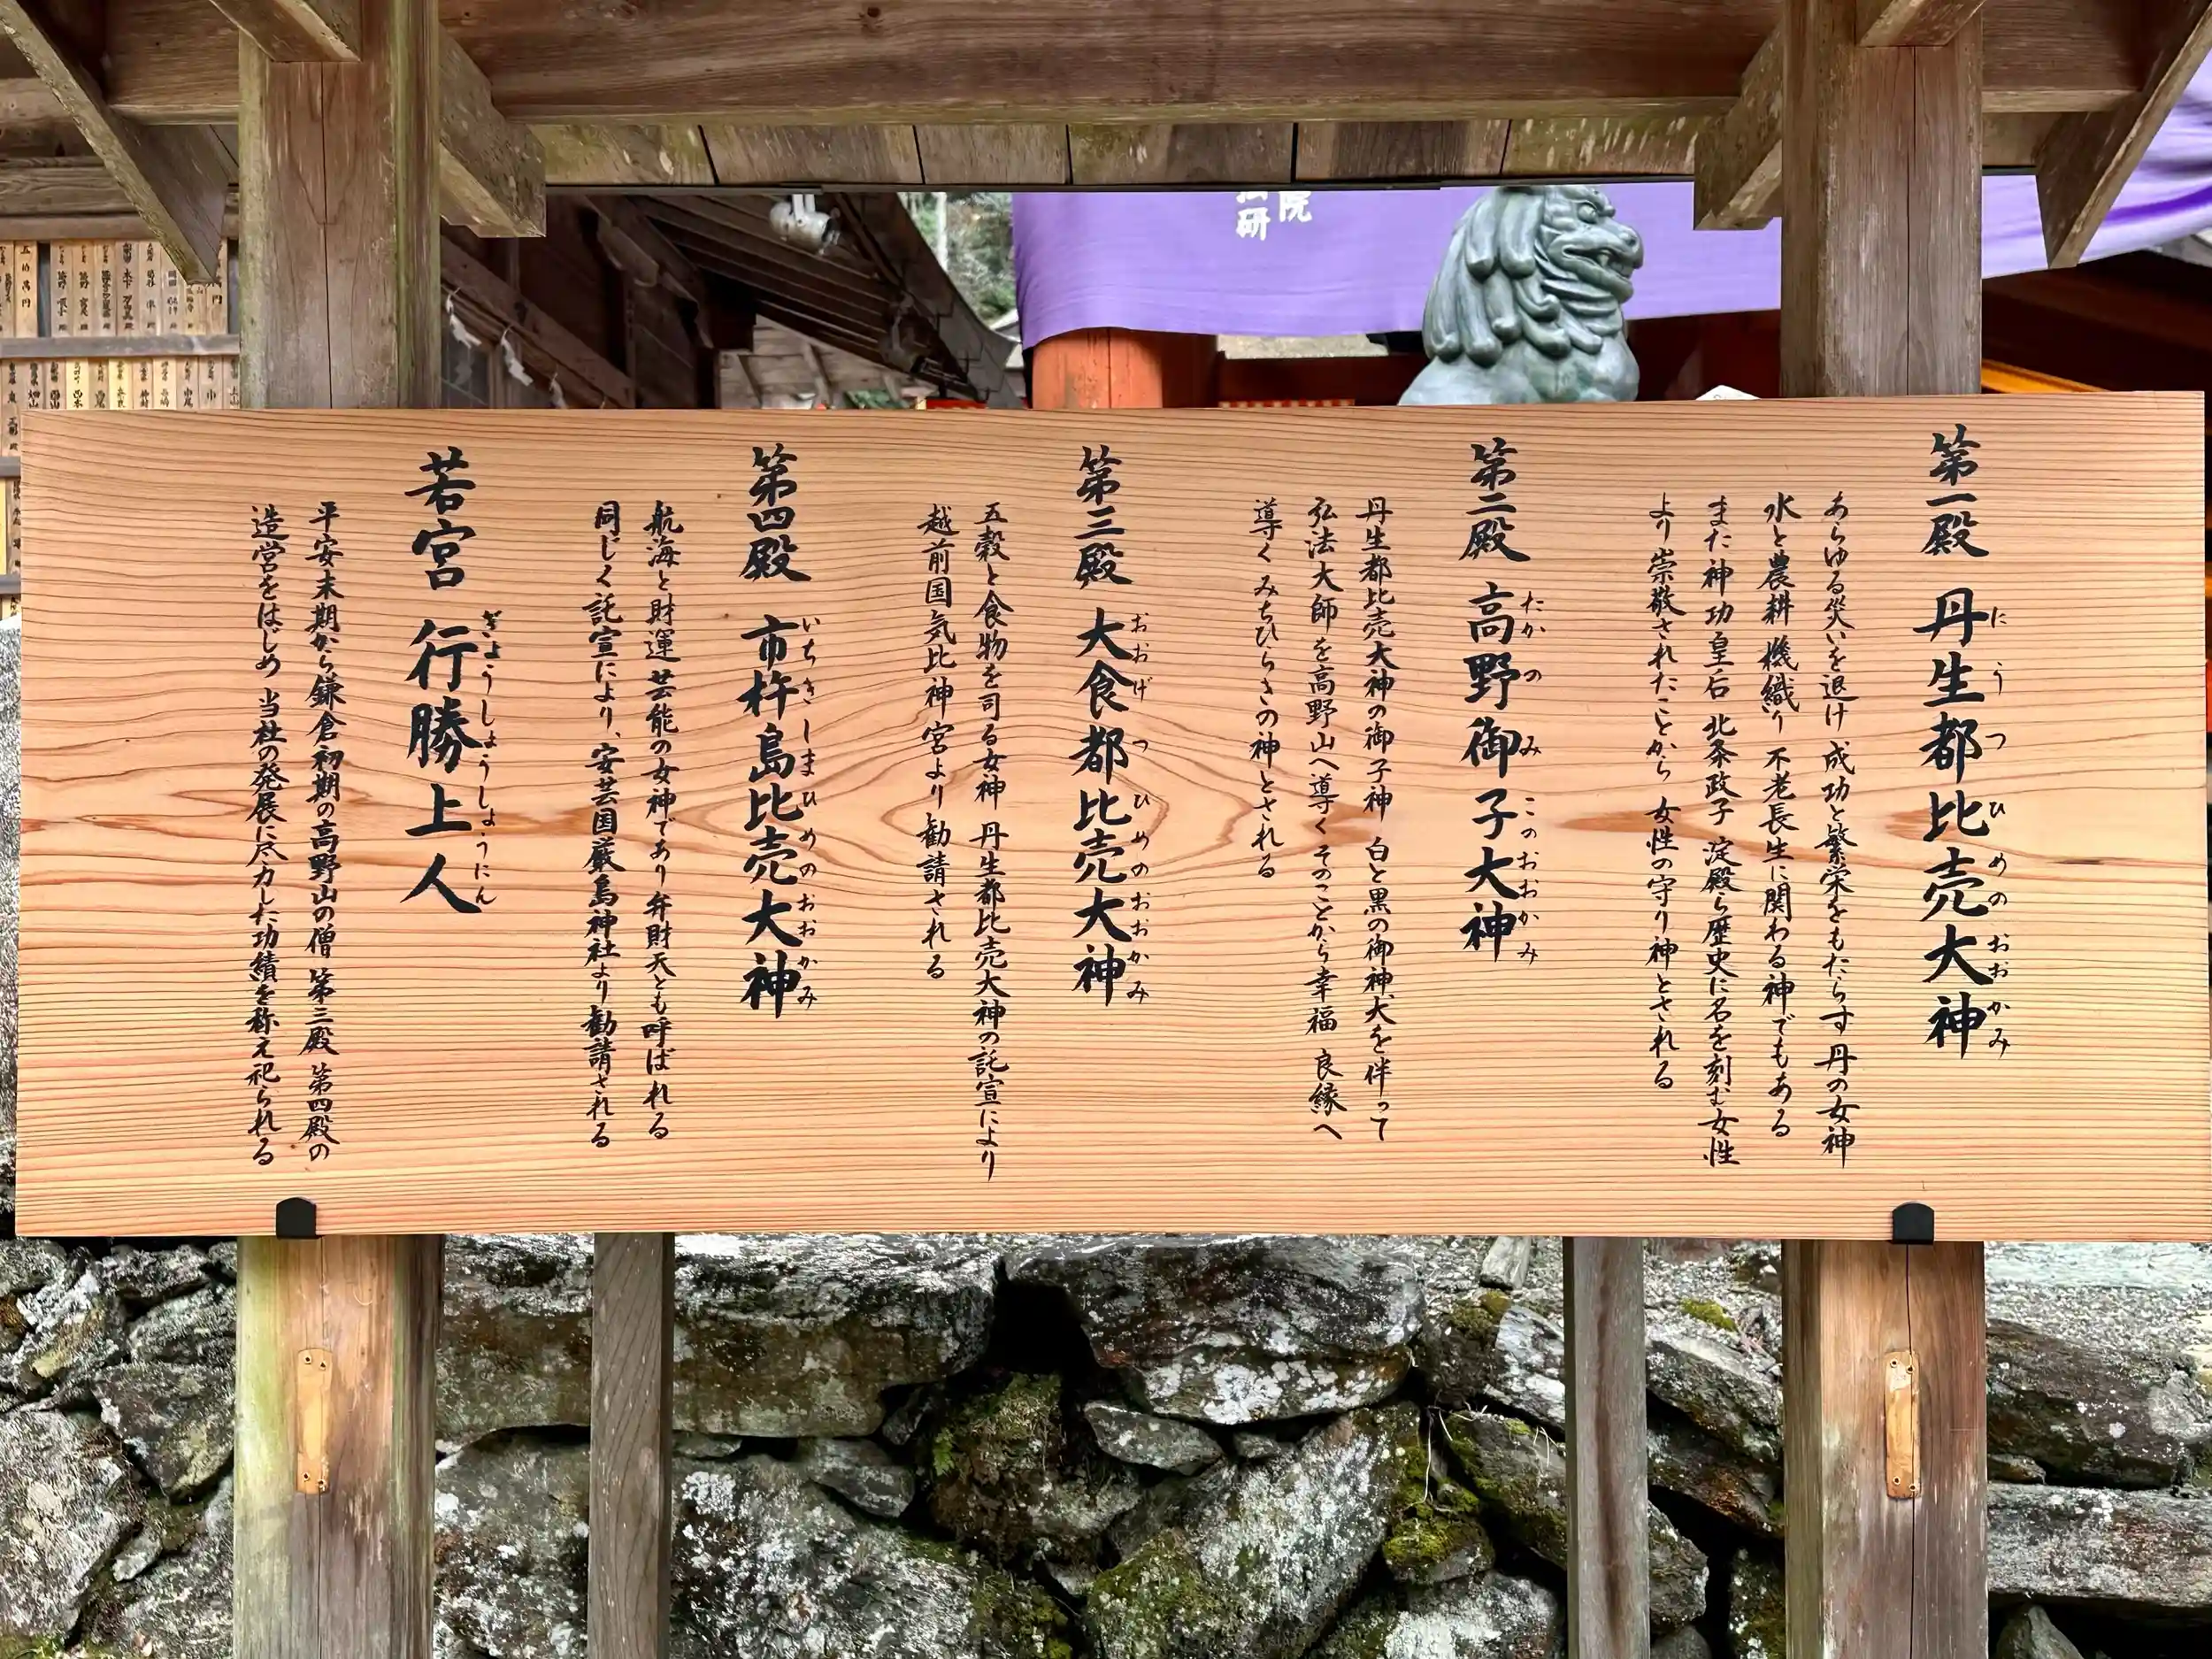 第一殿 丹生都比売大神
にうつひめのおおかみ
あらゆる災いを退け 成功と繁栄をもたらす 丹の女神
水と農耕 機織り 不老長生に関わる神でもある
また神功皇后 北条政子 淀殿ら歴史に名を刻む女性
より崇敬されたことから 女性の守り神とされる
第二殿 高野御子大神
たかのみこのおおかみ
丹生都比売大神の御子神 白と黒の御神犬を伴って
弘法大師を高野山へ導く そのことから幸福 良縁へ
導く みちひらきの神とされる
第三殿 大食都比売大神
おおげつひめのおおかみ
五穀と食物を司る女神 丹生都比売大神の託宣により
越前国気比神宮より勧請される
第四殿 市杵島比売大神
いちきしまひめのおおかみ
航海と財運 芸能の女神であり 弁財天とも呼ばれる
同じく託宣により、安芸国厳島神社より勧請される
若宮 行勝上人
ぎょうしょうしょうにん
平安末期から鎌倉初期の高野山の僧 第三殿 第四殿の
造営をはじめ 当社の発展に尽力した功績を称え祀られる
院
研